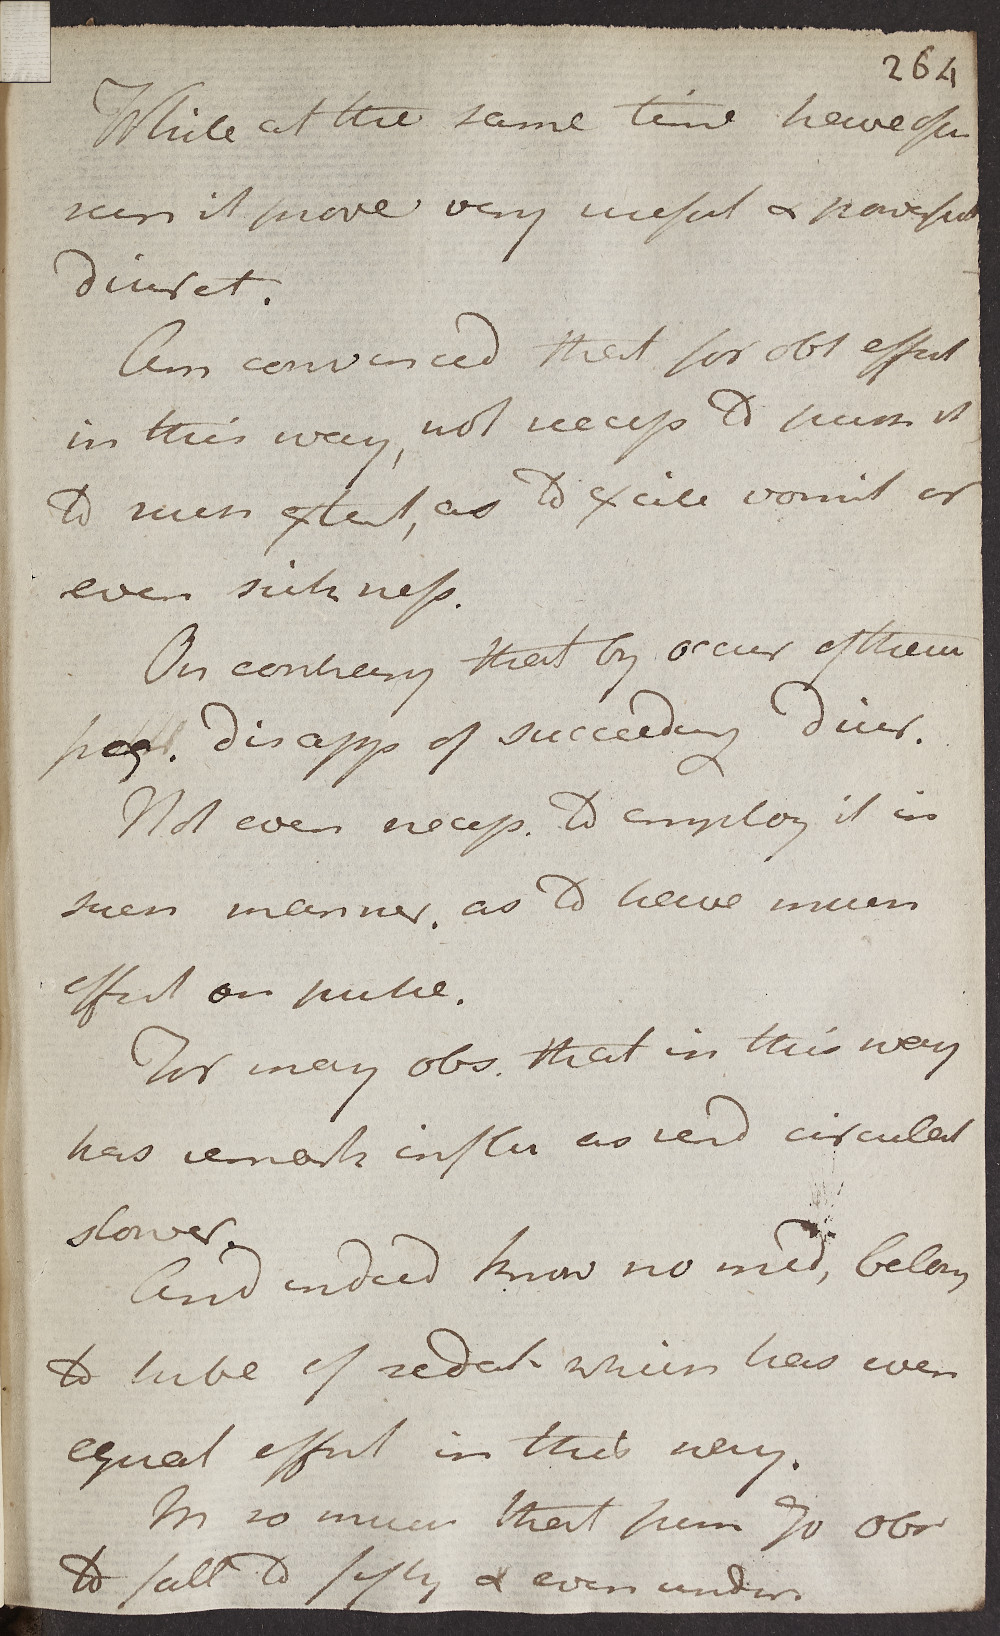 264
While at the same time have often
seen it prove very useful & powerful
diuret.
Am convinced that for obt effect
in this way, not necess to push it
to such extent, as to excite vomit or
even sickness.
On contrary that by occur of them
freq. disapp of succeeding diur.
Not even necess. to employ it in
such manner. as to have much
effect on pulse.
For may obs. that in this way
has remark influ as rend circulat
slower.
And indeed know no med, belong
to tribe of sedat which has even
equal effect in this way.
In so much that from 70 obs
to fall to fifty & even under.